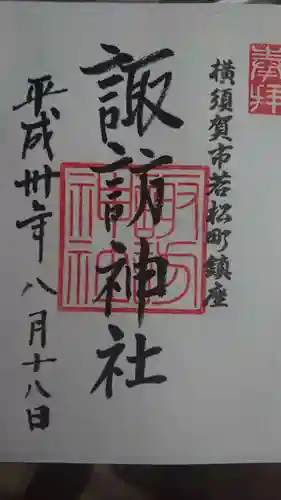 奉拝
横須賀市若松町鎮座
諏訪神社
諏訪神社
平成卅年八月十八日